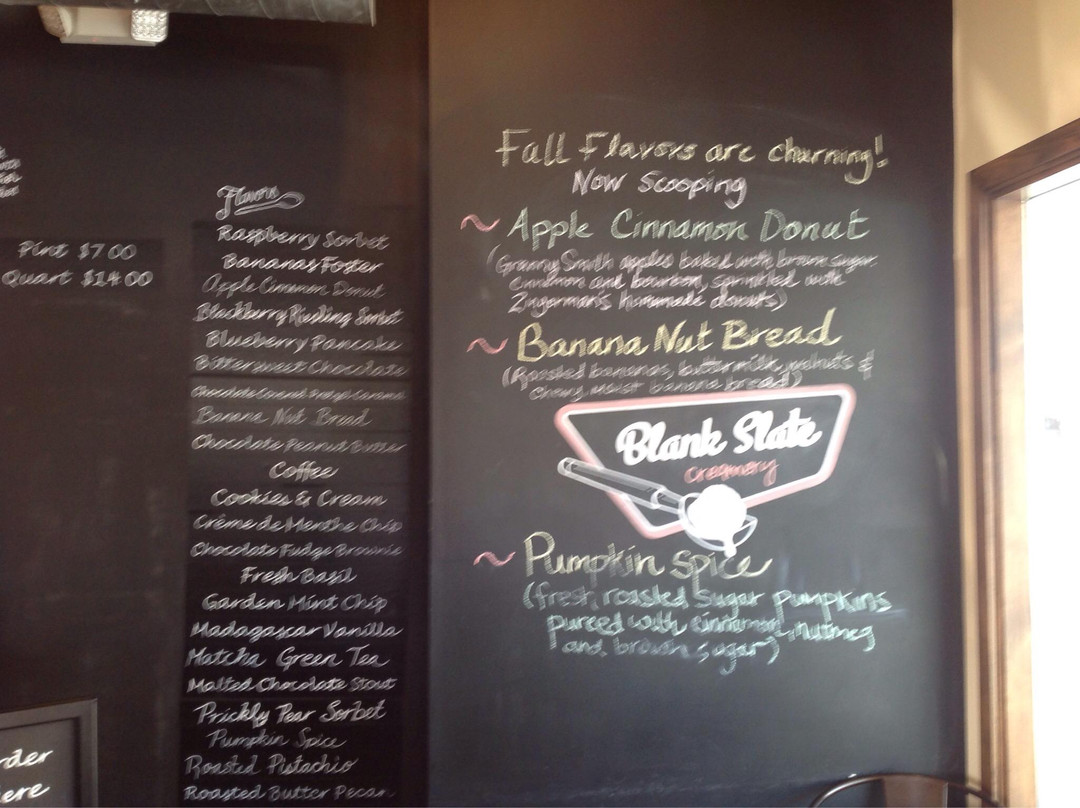 Pint $7.00
Quart $14.00
Flavors
Raspberry Sorbet
Bananas Foster
Apple Cinnamon Donut
Blackberry Riesling Sorbet
Blueberry Pancake
Bittersweet Chocolate
Chocolate Caramel Pretzel Caramel
Banana Nut Bread
Chocolate Peanut Butter
Coffee
Cookies & Cream
Crème de Menthe Chip
Chocolate Fudge Brownie
Fresh Basil
Garden Mint Chip
Madagascar Vanilla
Matcha Green Tea
Malted Chocolate Stout
Prickly Pear Sorbet
Pumpkin Spice
Roasted Pistachio
Roasted Butter Pecan
Fall Flavors are churning!
Now Scooping
~ Apple Cinnamon Donut
(Granny Smith apples baked with brown sugar
cinnamon and bourbon, sprinkled with
Zingerman's homemade donuts)
~ Banana Nut Bread
(Roasted bananas, buttermilk, walnuts &
chewy, moist banana bread)
Blank Slate
creamery
~ Pumpkin Spice
(fresh, roasted Sugar pumpkins
pureed with cinnamon, nutmeg
and brown sugar)